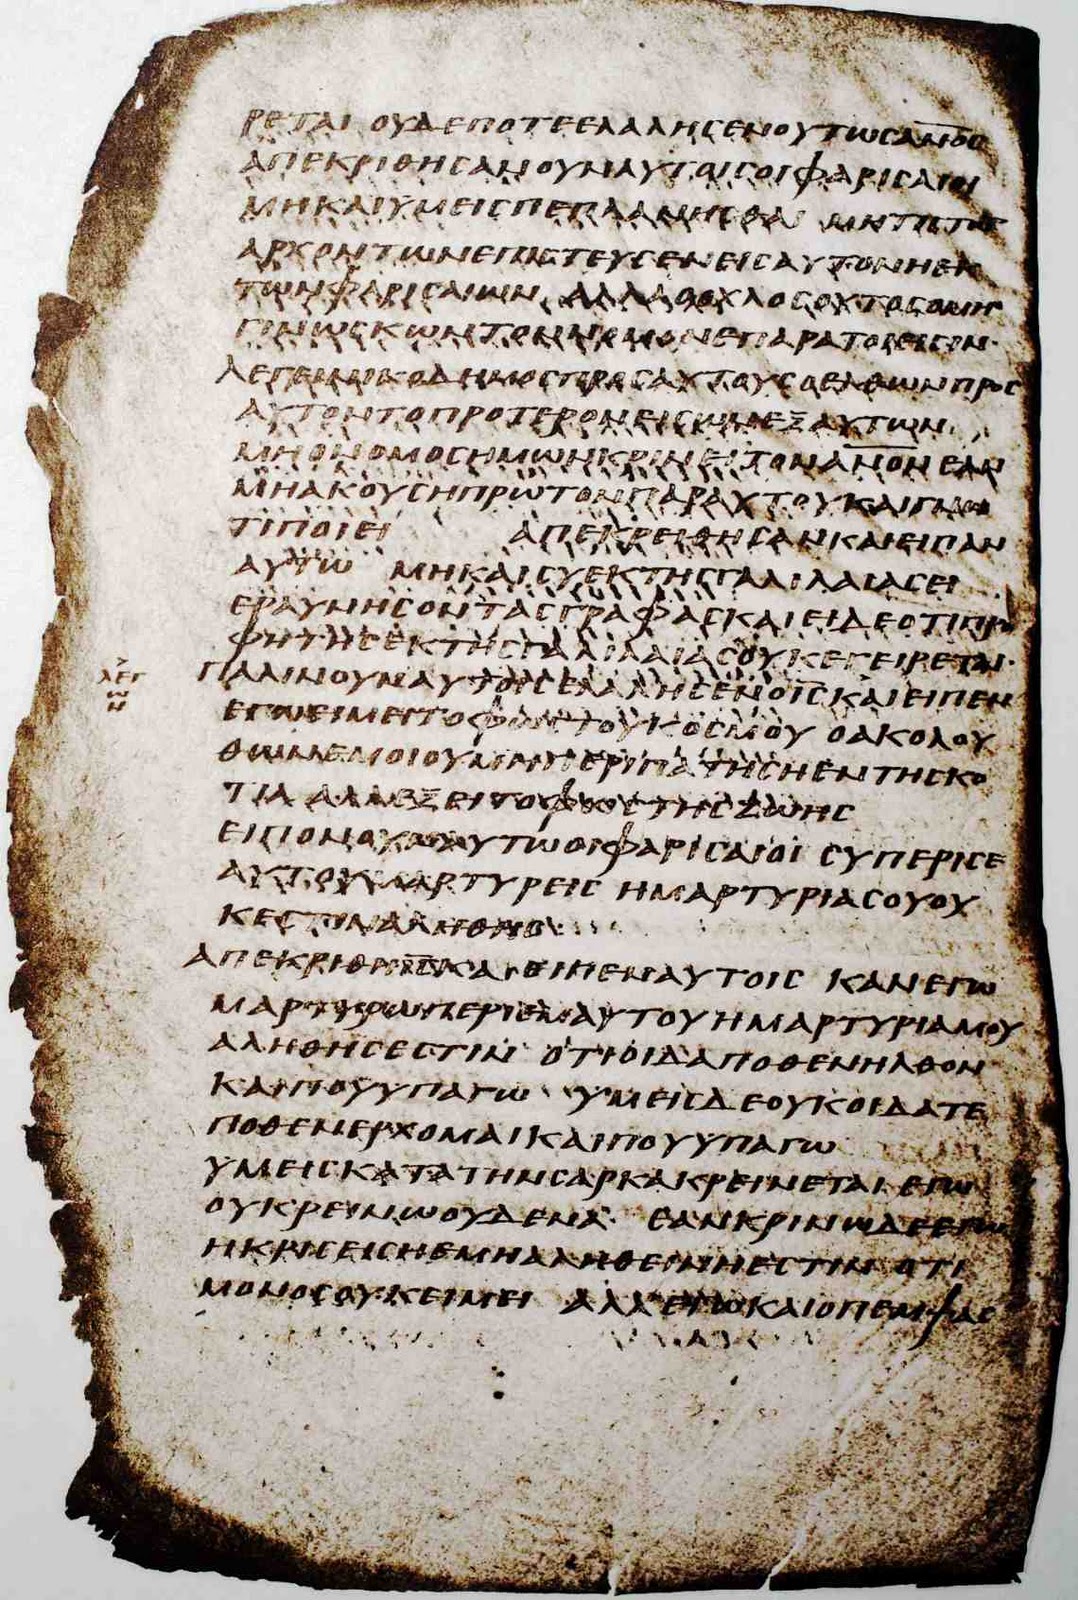 ΡΕΤΑΙ ΟΥΔΕΠΟΤΕΕΛΑΛΗϹΕΝΟΥΤΩϹΑΝΟϹ
ΑΠΕΚΡΙΘΗϹΑΝΟΥΝΑΥΤΟΙϹΟΙΦΑΡΙϹΑΙΟΙ
ΜΗΚΑΙΥΜΕΙϹΠΕΠΛΑΝΗϹΘΑΙ ΜΗΤΙϹΤΩ
ΑΡΧΟΝΤΩΝΕΠΙϹΤΕΥϹΕΝΕΙϹΑΥΤΟΝΗΕΚ
ΤΩΝΦΑΡΙϹΑΙΩΝ ΑΛΛΑΟΟΧΛΟϹΟΥΤΟϹΟΜΗ
ΓΙΝΩϹΚΩΝΤΟΝΝΟΜΟΝΕΠΑΡΑΤΟΙΕΙϹΙΝ·
ΛΕΓΕΙΝΙΚΟΔΗΜΟϹΠΡΟϹΑΥΤΟΥϹΟΕΛΘΩΝΠΡΟϹ
ΑΥΤΟΝΤΟΠΡΟΤΕΡΟΝΕΙϹΩΝΕΞΑΥΤΩΝ
ΜΗΟΝΟΜΟϹΗΜΩΝΚΡΙΝΕΙΤΟΝΑΝΟΝΕΑΝ
ΜΗΑΚΟΥϹΗΠΡΩΤΟΝΠΑΡΑΥΤΟΥΚΑΙΓΝΩ
ΤΙΠΟΙΕΙ ΑΠΕΚΡΕΙΘΗϹΑΝΚΑΙΕΙΠΑΝ
ΑΥΤΩ ΜΗΚΑΙϹΥΕΚΤΗϹΓΑΛΙΛΑΙΑϹΕΙ
ΕΡΑΥΝΗϹΟΝΤΑϹΓΡΑΦΑϹΚΑΙΕΙΔΕΟΤΙΠΡΟ
ΦΗΤΗϹΕΚΤΗϹΓΑΛΙΛΑΙΑϹΟΥΚΕΓΕΙΡΕΤΑΙ·
ΠΑΛΙΝΟΥΝΑΥΤΟΙϹΕΛΑΛΗϹΕΝΟΙϹΚΑΙΕΙΠΕΝ
ΛΕΓ
Ω
Ν
ΕΓΩΕΙΜΕΙΤΟΦΩϹΤΟΥΚΟϹΜΟΥ ΟΑΚΟΛΟΥ
ΘΩΝΕΜΟΙΟΥΜΗΠΕΡΙΠΑΤΗϹΗΕΝΤΗϹΚΟ
ΤΙΑ ΑΛΛΕΞΕΙΤΟΦΩϹΤΗϹΖΩΗϹ
ΕΙΠΟΝΟΥΝΑΥΤΩΟΙΦΑΡΙϹΑΙΟΙ ϹΥΠΕΡΙϹΕ
ΑΥΤΟΥΜΑΡΤΥΡΕΙϹ ΗΜΑΡΤΥΡΙΑϹΟΥΟΥ
ΚΕϹΤΙΝΑΛΗΘΗϹ
ΑΠΕΚΡΙΘΗΙϹΚΑΙΕΙΠΕΝΑΥΤΟΙϹ ΚΑΝΕΓΩ
ΜΑΡΤΥΡΩΠΕΡΙΕΜΑΥΤΟΥΗΜΑΡΤΥΡΙΑΜΟΥ
ΑΛΗΘΗϹΕϹΤΙΝ ΟΤΙΟΙΔΑΠΟΘΕΝΗΛΘΟΝ
ΚΑΙΠΟΥΥΠΑΓΩ ΥΜΕΙϹΔΕΟΥΚΟΙΔΑΤΕ
ΠΟΘΕΝΕΡΧΟΜΑΙΚΑΙΠΟΥΥΠΑΓΩ
ΥΜΕΙϹΚΑΤΑΤΗΝϹΑΡΚΑΚΡΕΙΝΕΤΑΙ ΕΓΩ
ΟΥΚΡΕΙΝΩΟΥΔΕΝΑ· ΕΑΝΚΡΙΝΩΔΕΕΓΩ
ΗΚΡΙϹΕΙϹΗΕΜΗΑΛΗΘΕΙΝΗΕϹΤΙΝ ΟΤΙ
ΜΟΝΟϹΟΥΚΕΙΜΕΙ ΑΛΛΕΓΩΚΑΙΟΠΕΜΨΑϹ